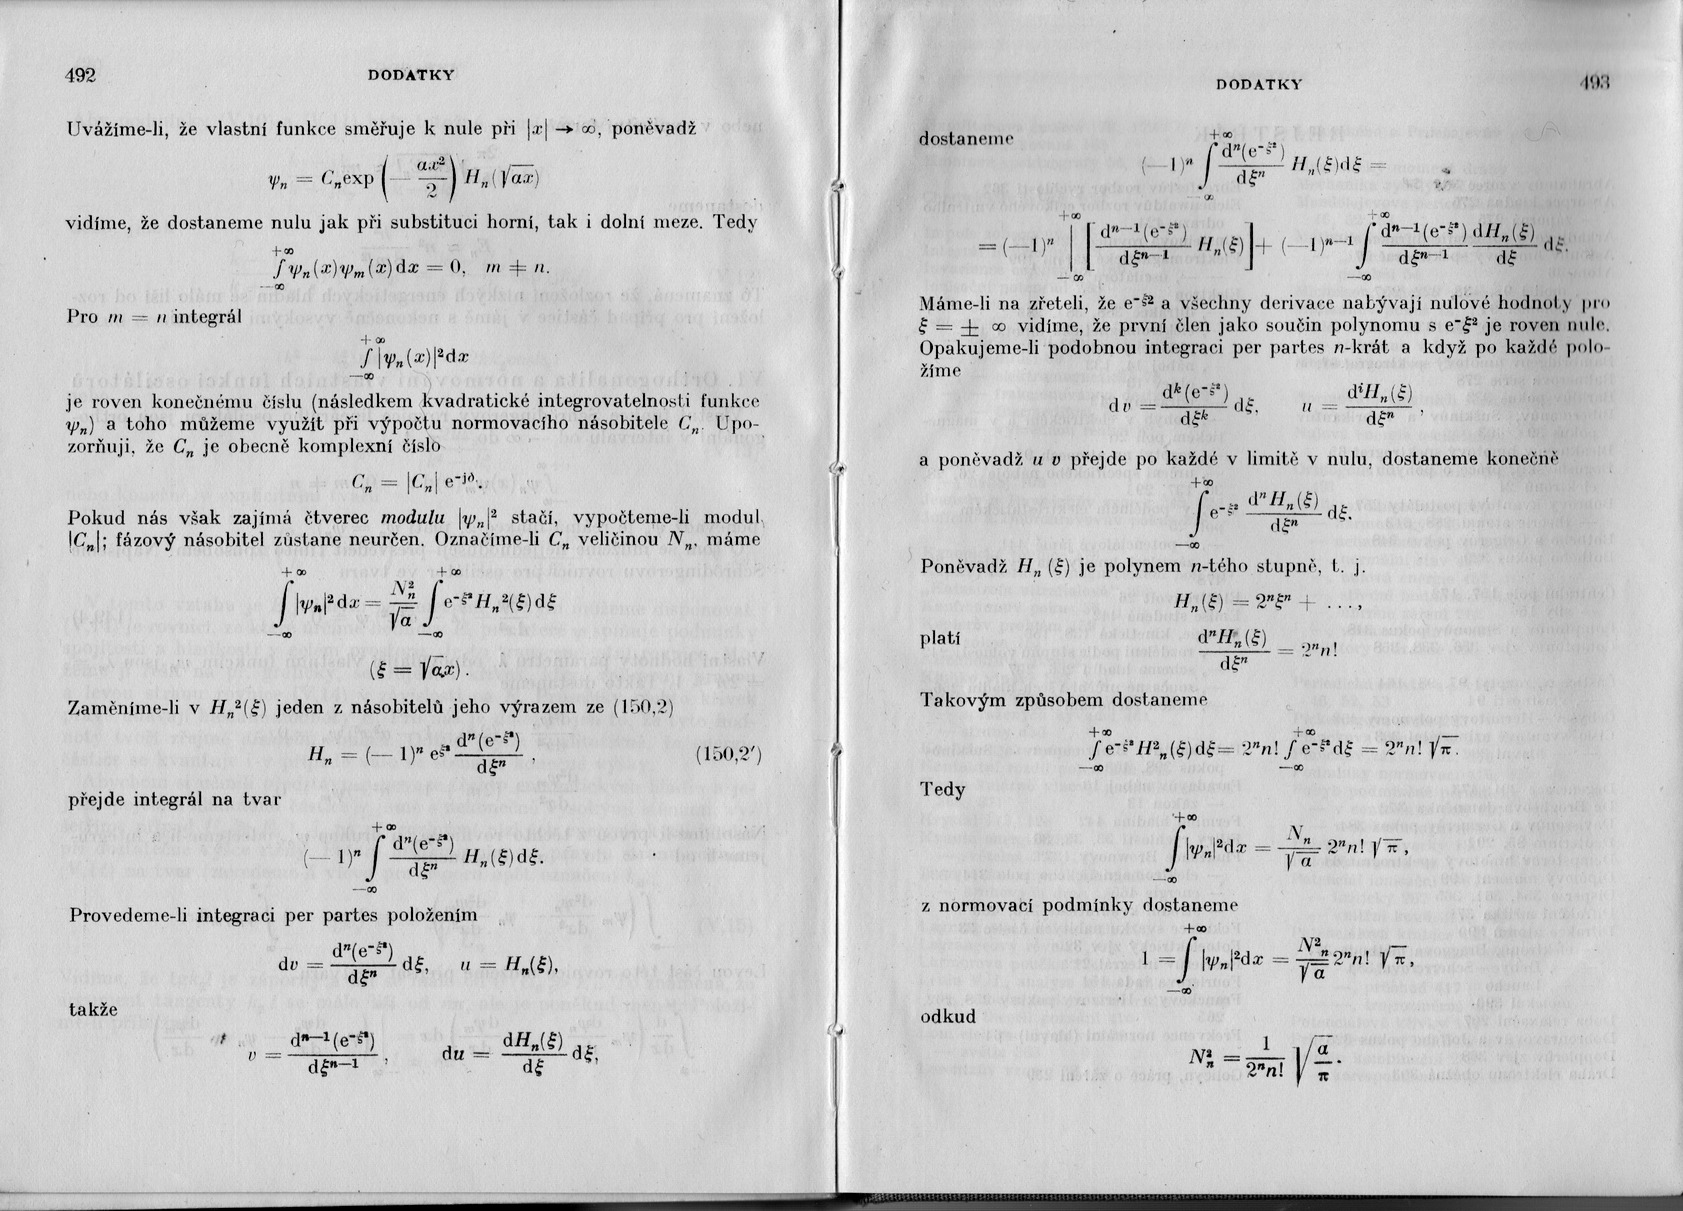 492
DODATKY
Uvážíme-li, že vlastní funkce směřuje k nule při |x| → ∞, poněvadž
ψₙ = Cₙ exp (− ax²/2) Hₙ(√ax)
vidíme, že dostaneme nulu jak při substituci horní, tak i dolní meze. Tedy
+∞
∫ ψₙ(x)ψₘ(x)dx = 0, m ≠ n.
−∞
Pro m = n integrál
+∞
∫ |ψₙ(x)|²dx
−∞
je roven konečnému číslu (následkem kvadratické integrovatelnosti funkce
ψₙ) a toho můžeme využít při výpočtu normovacího násobitele Cₙ. Upo-
zorňuji, že Cₙ je obecně komplexní číslo
Cₙ = |Cₙ| e⁻ʲᵟ.
Pokud nás však zajímá čtverec modulu |ψₙ|² stačí, vypočteme-li modul
|Cₙ|; fázový násobitel zůstane neurčen. Označíme-li Cₙ veličinou Nₙ, máme
+∞ +∞
∫ |ψₙ|²dx = N²ₙ/√a ∫ e^{-ξ²}Hₙ²(ξ)dξ
−∞ −∞
(ξ = √ax).
Zaměníme-li v Hₙ²(ξ) jeden z násobitelů jeho výrazem ze (150,2)
Hₙ = (− 1)ⁿ e^{ξ²} dⁿ(e^{-ξ²})/dξⁿ , (150,2′)
přejde integrál na tvar
+∞
(− 1)ⁿ ∫ dⁿ(e^{-ξ²})/dξⁿ Hₙ(ξ)dξ.
−∞
Provedeme-li integraci per partes položením
dv = dⁿ(e^{-ξ²})/dξⁿ dξ, u = Hₙ(ξ),
takže
v = dⁿ⁻¹(e^{-ξ²})/dξⁿ⁻¹ , du = dHₙ(ξ)/dξ dξ,
DODATKY
493
dostaneme
+∞
(−1)ⁿ ∫ dⁿ(e^{-ξ²})/dξⁿ Hₙ(ξ)dξ =
−∞
+∞ +∞
= (−1)ⁿ | [dⁿ⁻¹(e^{-ξ²})/dξⁿ⁻¹ Hₙ(ξ)] + (−1)ⁿ⁻¹ ∫ dⁿ⁻¹(e^{-ξ²})/dξⁿ⁻¹ dHₙ(ξ)/dξ dξ.
−∞ −∞
Máme-li na zřeteli, že e^{-ξ²} a všechny derivace nabývají nulové hodnoty pro
ξ = ± ∞ vidíme, že první člen jako součin polynomu s e^{-ξ²} je roven nule.
Opakujeme-li podobnou integraci per partes n-krát a když po každé polo-
žíme
dv = dᵏ(e^{-ξ²})/dξᵏ dξ, u = dⁱHₙ(ξ)/dξⁿ ,
a poněvadž u v přejde po každé v limitě v nulu, dostaneme konečně
+∞
∫ e^{-ξ²} dⁿHₙ(ξ)/dξⁿ dξ.
−∞
Poněvadž Hₙ (ξ) je polynem n-tého stupně, t. j.
Hₙ(ξ) = 2ⁿξⁿ + ...,
platí
dⁿHₙ(ξ)/dξⁿ = 2ⁿn!
Takovým způsobem dostaneme
+∞ +∞
∫ e^{-ξ²}H²ₙ(ξ)dξ = 2ⁿn! ∫ e^{-ξ²}dξ = 2ⁿn! √π.
−∞ −∞
Tedy
+∞
∫ |ψₙ|²dx = Nₙ/√a 2ⁿn! √π,
−∞
z normovací podmínky dostaneme
+∞
1 = ∫ |ψₙ|²dx = N²ₙ/√a 2ⁿn! √π,
−∞
odkud
N²ₙ = 1/2ⁿn! √(a/π).